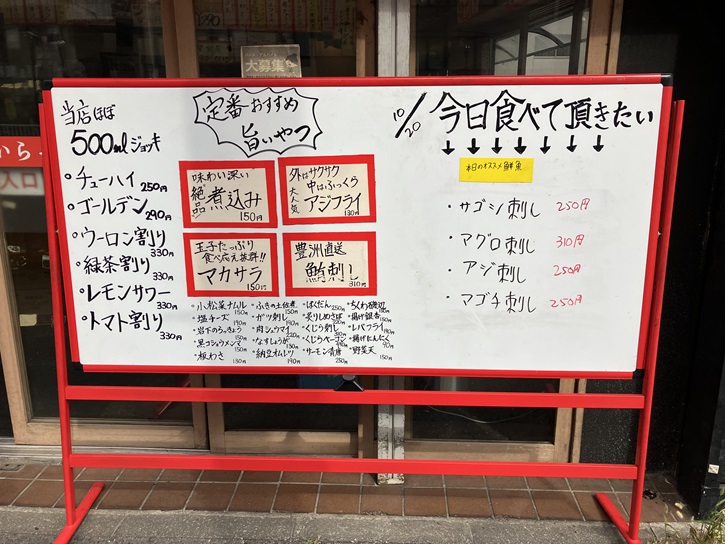 大募集
当店ほぼ
500mlジョッキ
・チューハイ 250円
・ゴールデン 290円
・ウーロン割り 330円
・緑茶割り 330円
・レモンサワー 330円
・トマト割り 330円
定番おすすめ
旨いやつ
味わい深い
絶品
煮込み
150円
外はサクサク
中はふっくら
大人気
アジフライ
130円
玉子たっぷり
食べ応え抜群!!
マカサラ
150円
豊洲直送
鮪刺し
310円
・小松菜ナムル 150円
・塩チーズ 190円
・岩下のらっきょう 150円
・黒コショウメンマ 150円
・板わさ 150円
・ふきの土佐煮 150円
・ガツ刺し 190円
・肉シュウマイ 220円
・なすしょうが 130円
・納豆オムレツ 190円
・ばくだん 250円
・炙りしめさば
・くじら刺し
・くじらベーコン
・サーモン青唐 250円
・ちくわ磯辺
・揚げ銀杏 150円
・レバフライ 190円
・揚げにんにく 90円
・野菜天 150円
10/20 今日食べて頂きたい
↓ ↓ ↓ ↓ ↓ ↓ ↓
本日のオススメ鮮魚
・サゴシ刺し 250円
・マグロ刺し 310円
・アジ刺し 250円
・マゴチ刺し 250円
から
入口